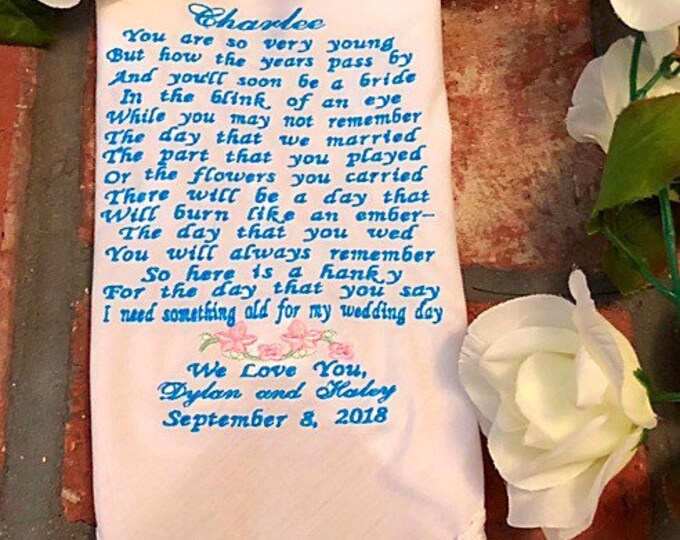 Charlee
You are so very young
But how the years pass by
And you'll soon be a bride
In the blink of an eye
While you may not remember
The day that we married
The part that you played
Or the flowers you carried
There will be a day that
Will burn like an ember--
The day that you wed
You will always remember
So here is a hanky
For the day that you say
I need something old for my wedding day
We Love You,
Dylan and Haley
September 8, 2018